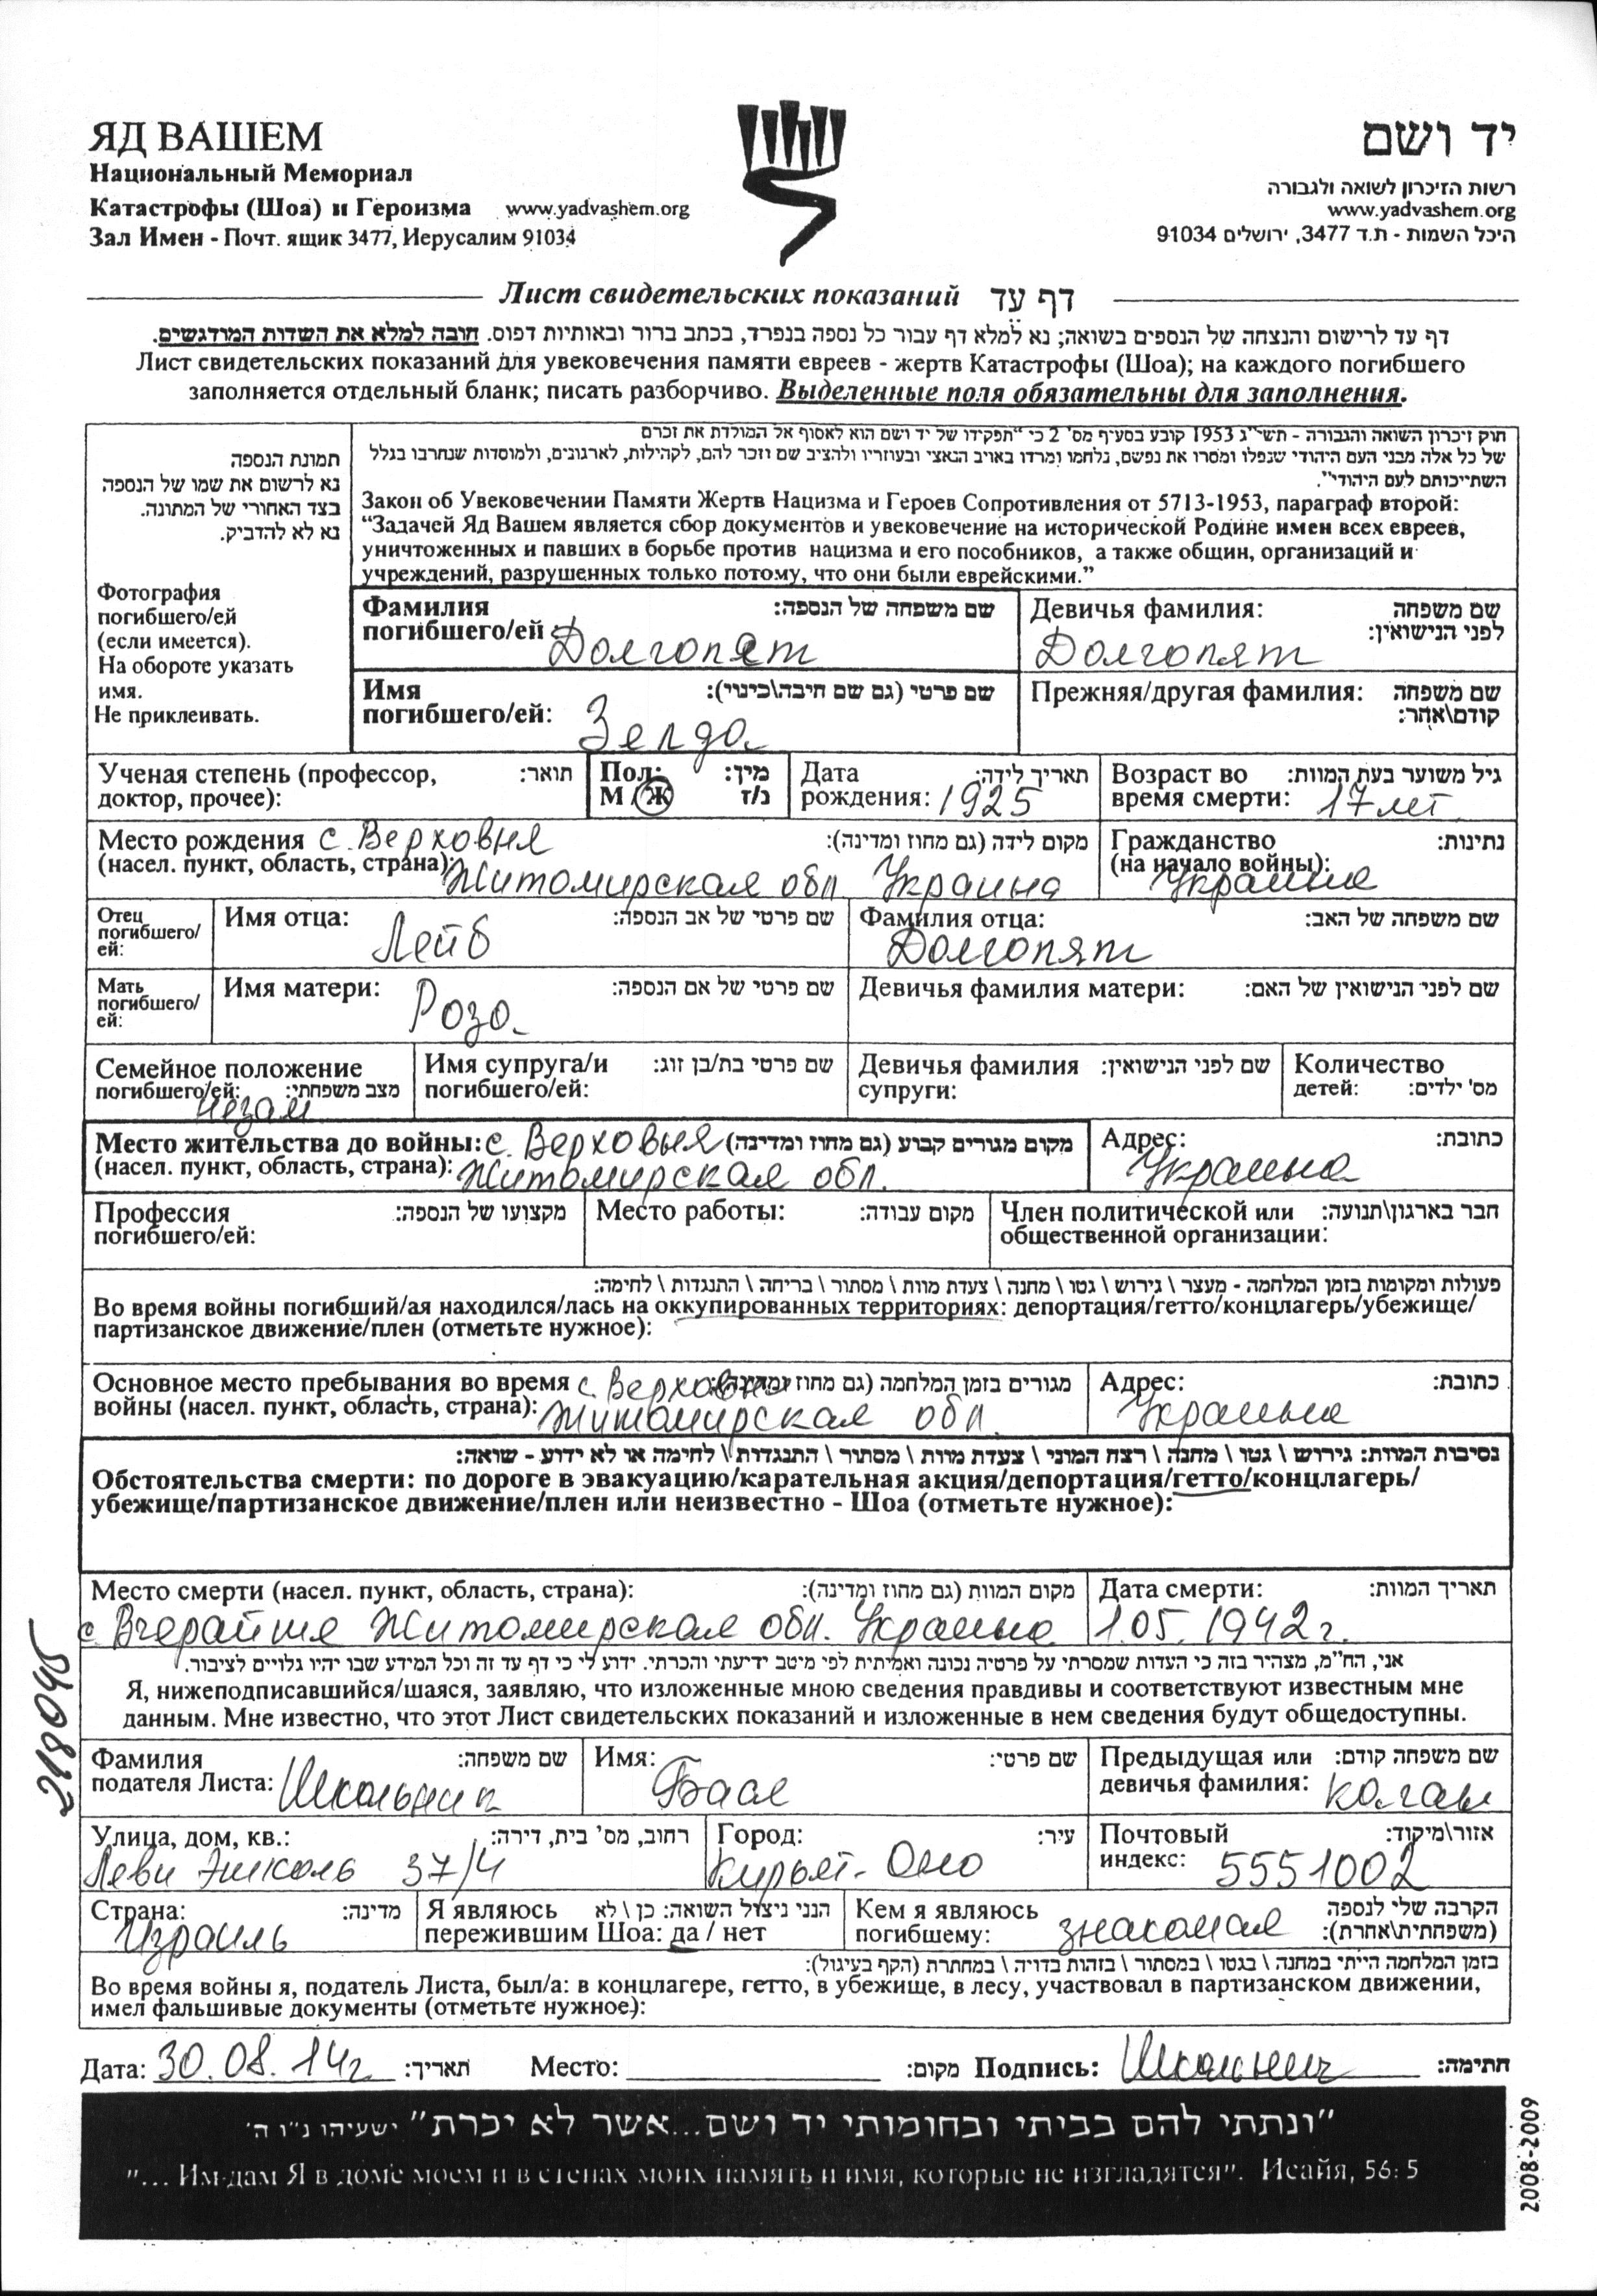 ЯД ВАШЕМ
Национальный Мемориал
Катастрофы (Шоа) и Героизма www.yadvashem.org
Зал Имен - Почт. ящик 3477, Иерусалим 91034
יד ושם
רשות הזיכרון לשואה ולגבורה
www.yadvashem.org
היכל השמות - ת.ד 3477, ירושלים 91034
Лист свидетельских показаний דף עֵד
דף עד לרישום והנצחה של הנספים בשואה; נא למלא דף עבור כל נספה בנפרד, בכתב ברור ובאותיות דפוס. חובה למלא את השדות המודגשים.
Лист свидетельских показаний для увековечения памяти евреев - жертв Катастрофы (Шоа); на каждого погибшего
заполняется отдельный бланк; писать разборчиво. Выделенные поля обязательны для заполнения.
תמונת הנספה
נא לרשום את שמו של הנספה
בצד האחורי של המתונה.
נא לא להדביק.
Фотография
погибшего/ей
(если имеется).
На обороте указать
имя.
Не приклеивать.
חוק זיכרון השואה והגבורה - תשי"ג 1953 קובע בסעיף מס' 2 כי "תפקידו של יד ושם הוא לאסוף אל המולדת את זכרם
של כל אלה מבני העם היהודי שנפלו ומסרו את נפשם, נלחמו ומרדו באויב הנאצי ובעוזריו ולהציב שם וזכר להם, לקהילות, לארגונים, ולמוסדות שנחרבו בגלל
השתייכותם לעם היהודי".
Закон об Увековечении Памяти Жертв Нацизма и Героев Сопротивления от 5713-1953, параграф второй:
“Задачей Яд Вашем является сбор документов и увековечение на исторической Родине имен всех евреев,
уничтоженных и павших в борьбе против нацизма и его пособников, а также общин, организаций и
учреждений, разрушенных только потому, что они были еврейскими.”
Фамилия שם משפחה של הנספה:
погибшего/ей Долгопят
Девичья фамилия: שם משפחה
לפני הנישואין:
Долгопят
Имя שם פרטי (גם שם חיבה\כינוי):
погибшего/ей: Зелда
Прежняя/другая фамилия: שם משפחה
קודם\אחר:
Ученая степень (профессор, תואר:
доктор, прочее):
Пол: מין:
М / Ж נ/ז
Дата תאריך לידה:
рождения: 1925
Возраст во גיל משוער בעת המוות:
время смерти: 17 лет
Место рождения с. Верховня מקום לידה (גם מחוז ומדינה):
(насел. пункт, область, страна): Житомирская обл Украина
Гражданство נתינות:
(на начало войны): Украина
Отец
погибшего/
ей:
Имя отца: Лейб שם פרטי של אב הנספה:
Фамилия отца: Долгопят שם משפחה של האב:
Мать
погибшего/
ей:
Имя матери: Роза שם פרטי של אם הנספה:
Девичья фамилия матери: שם לפני הנישואין של האם:
Семейное положение
погибшего/ей: מצב משפחתי:
незам
Имя супруга/и שם פרטי בת/בן זוג:
погибшего/ей:
Девичья фамилия שם לפני הנישואין:
супруги:
Количество
детей: מס' ילדים:
Место жительства до войны: с. Верховня מקום מגורים קבוע (גם מחוז ומדינה)
(насел. пункт, область, страна): Житомирская обл.
Адрес: כתובת:
Украина
Профессия מקצועו של הנספה:
погибшего/ей:
Место работы: מקום עבודה:
Член политической или חבר בארגון\תנועה:
общественной организации:
פעולות ומקומות בזמן המלחמה - מעצר \ גירוש \ גטו \ מחנה \ צעדת מוות \ מסתור \ בריחה \ התנגדות \ לחימה:
Во время войны погибший/ая находился/лась на оккупированных территориях: депортация/гетто/концлагерь/убежище/
партизанское движение/плен (отметьте нужное):
Основное место пребывания во время с. Верховня מגורים בזמן המלחמה (גם מחוז ומדינה):
войны (насел. пункт, область, страна): Житомирская обл
Адрес: כתובת:
Украина
נסיבות המוות: גירוש \ גטו \ מחנה \ רצח המוני \ צעדת מוות \ מסתור \ התנגדות \ לחימה או לא ידוע - שואה:
Обстоятельства смерти: по дороге в эвакуацию/карательная акция/депортация/гетто/концлагерь/
убежище/партизанское движение/плен или неизвестно - Шоа (отметьте нужное):
Место смерти (насел. пункт, область, страна): מקום המוות (גם מחוז ומדינה):
с. Вчерайше Житомирская обл. Украина
Дата смерти: תאריך המוות:
1.05.1942 г.
אני, הח"מ, מצהיר בזה כי העדות שמסרתי על פרטיה נכונה ואמיתית לפי מיטב ידיעתי והכרתי. ידוע לי כי דף עד זה וכל המידע שבו יהיו גלויים לציבור.
Я, нижеподписавшийся/шаяся, заявляю, что изложенные мною сведения правдивы и соответствуют известным мне
данным. Мне известно, что этот Лист свидетельских показаний и изложенные в нем сведения будут общедоступны.
218045
Фамилия שם משפחה:
подателя Листа: Школьник
Имя: שם פרטי:
Бася
Предыдущая или שם משפחה קודם:
девичья фамилия: Коган
Улица, дом, кв.: רחוב, מס' בית, דירה:
Леви Эшколь 37/4
Город: עיר:
Кирьят-Оно
Почтовый אזור\מיקוד:
индекс: 5551002
Страна: מדינה:
Израиль
Я являюсь הנני ניצול השואה: כן \ לא
пережившим Шоа: да / нет
Кем я являюсь הקרבה שלי לנספה
погибшему: знакомая (משפחתית\אחרת):
בזמן המלחמה הייתי במחנה \ בגטו \ במסתור \ בזהות בדויה \ במחתרת (הקף בעיגול):
Во время войны я, податель Листа, был/а: в концлагере, гетто, в убежище, в лесу, участвовал в партизанском движении,
имел фальшивые документы (отметьте нужное):
Дата: 30.08.14г. תאריך: Место: מקום: Подпись: Школьник חתימה:
"ונתתי להם בביתי ובחומותי יד ושם...אשר לא יכרת" ישעיהו נ"ו ה'
"... Им дам Я в доме моем и в стенах моих память и имя, которые не изгладятся". Исайя, 56: 5
2008-2009